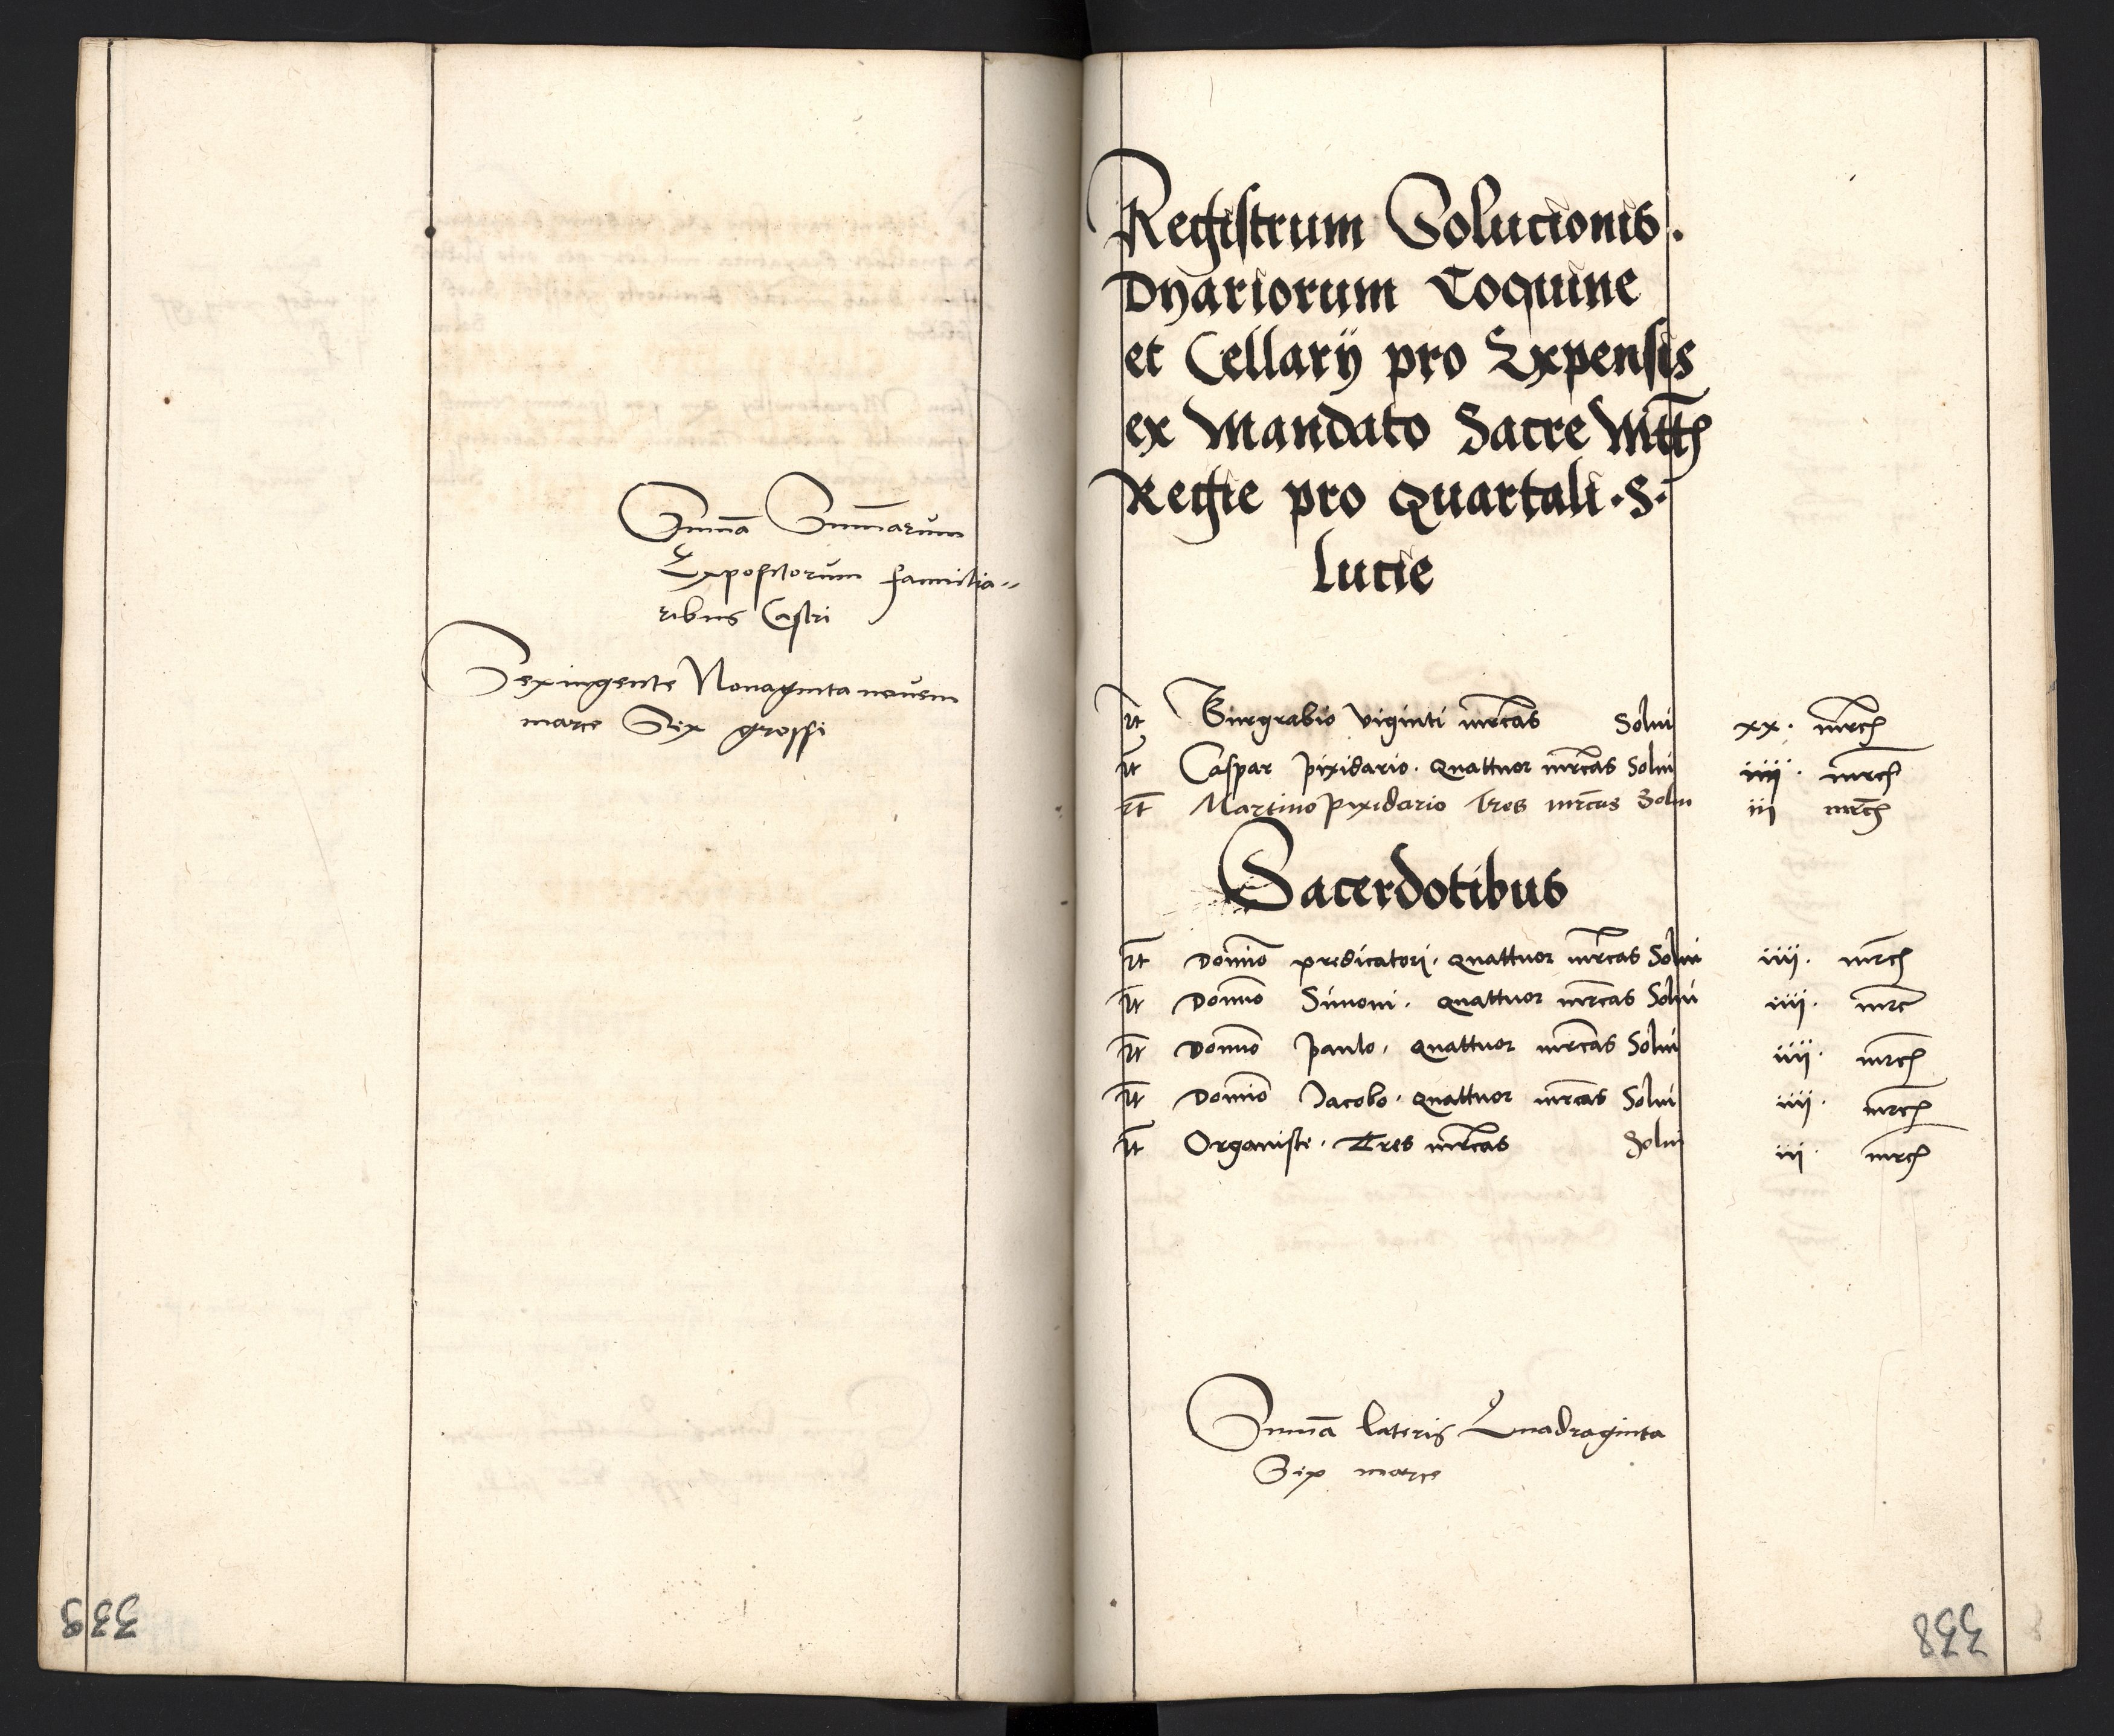 Sum̄a Sum̄arum
Expositorum familia=
ribus Castri
Sexingente Nonaginta novem
marce Sex grossi
339
Registrum Solucionis.
Dn̄ariorum Coquine
et Cellarÿ pro Expensis
ex Mandato Sacre Mtt̄
Regie pro Quartali .S.
Lucie
It̄ Burgrabio viginti mr̄cas Solui xx. mr̄c
It̄ Caspar pixidario. quattuor mr̄cas Solui iiij. mr̄c
It̄ Martino pixidario Tres mr̄cas Solui iij mr̄c
Sacerdotibus
It̄ Domīo predicatori. quattuor mr̄cas Solui iiij. mr̄c
It̄ Domīo Simoni. quattuor mr̄cas Solui iiij. mr̄c
It̄ Domīo paulo. quattuor mr̄cas Solui iiij. mr̄c
It̄ Domīo Jacobo. quattuor mr̄cas Solui iiij. mr̄c
It̄ Organiste. Tres mr̄cas Solui iij. mr̄c
Sum̄a lateris Quadraginta
Sex marce
338